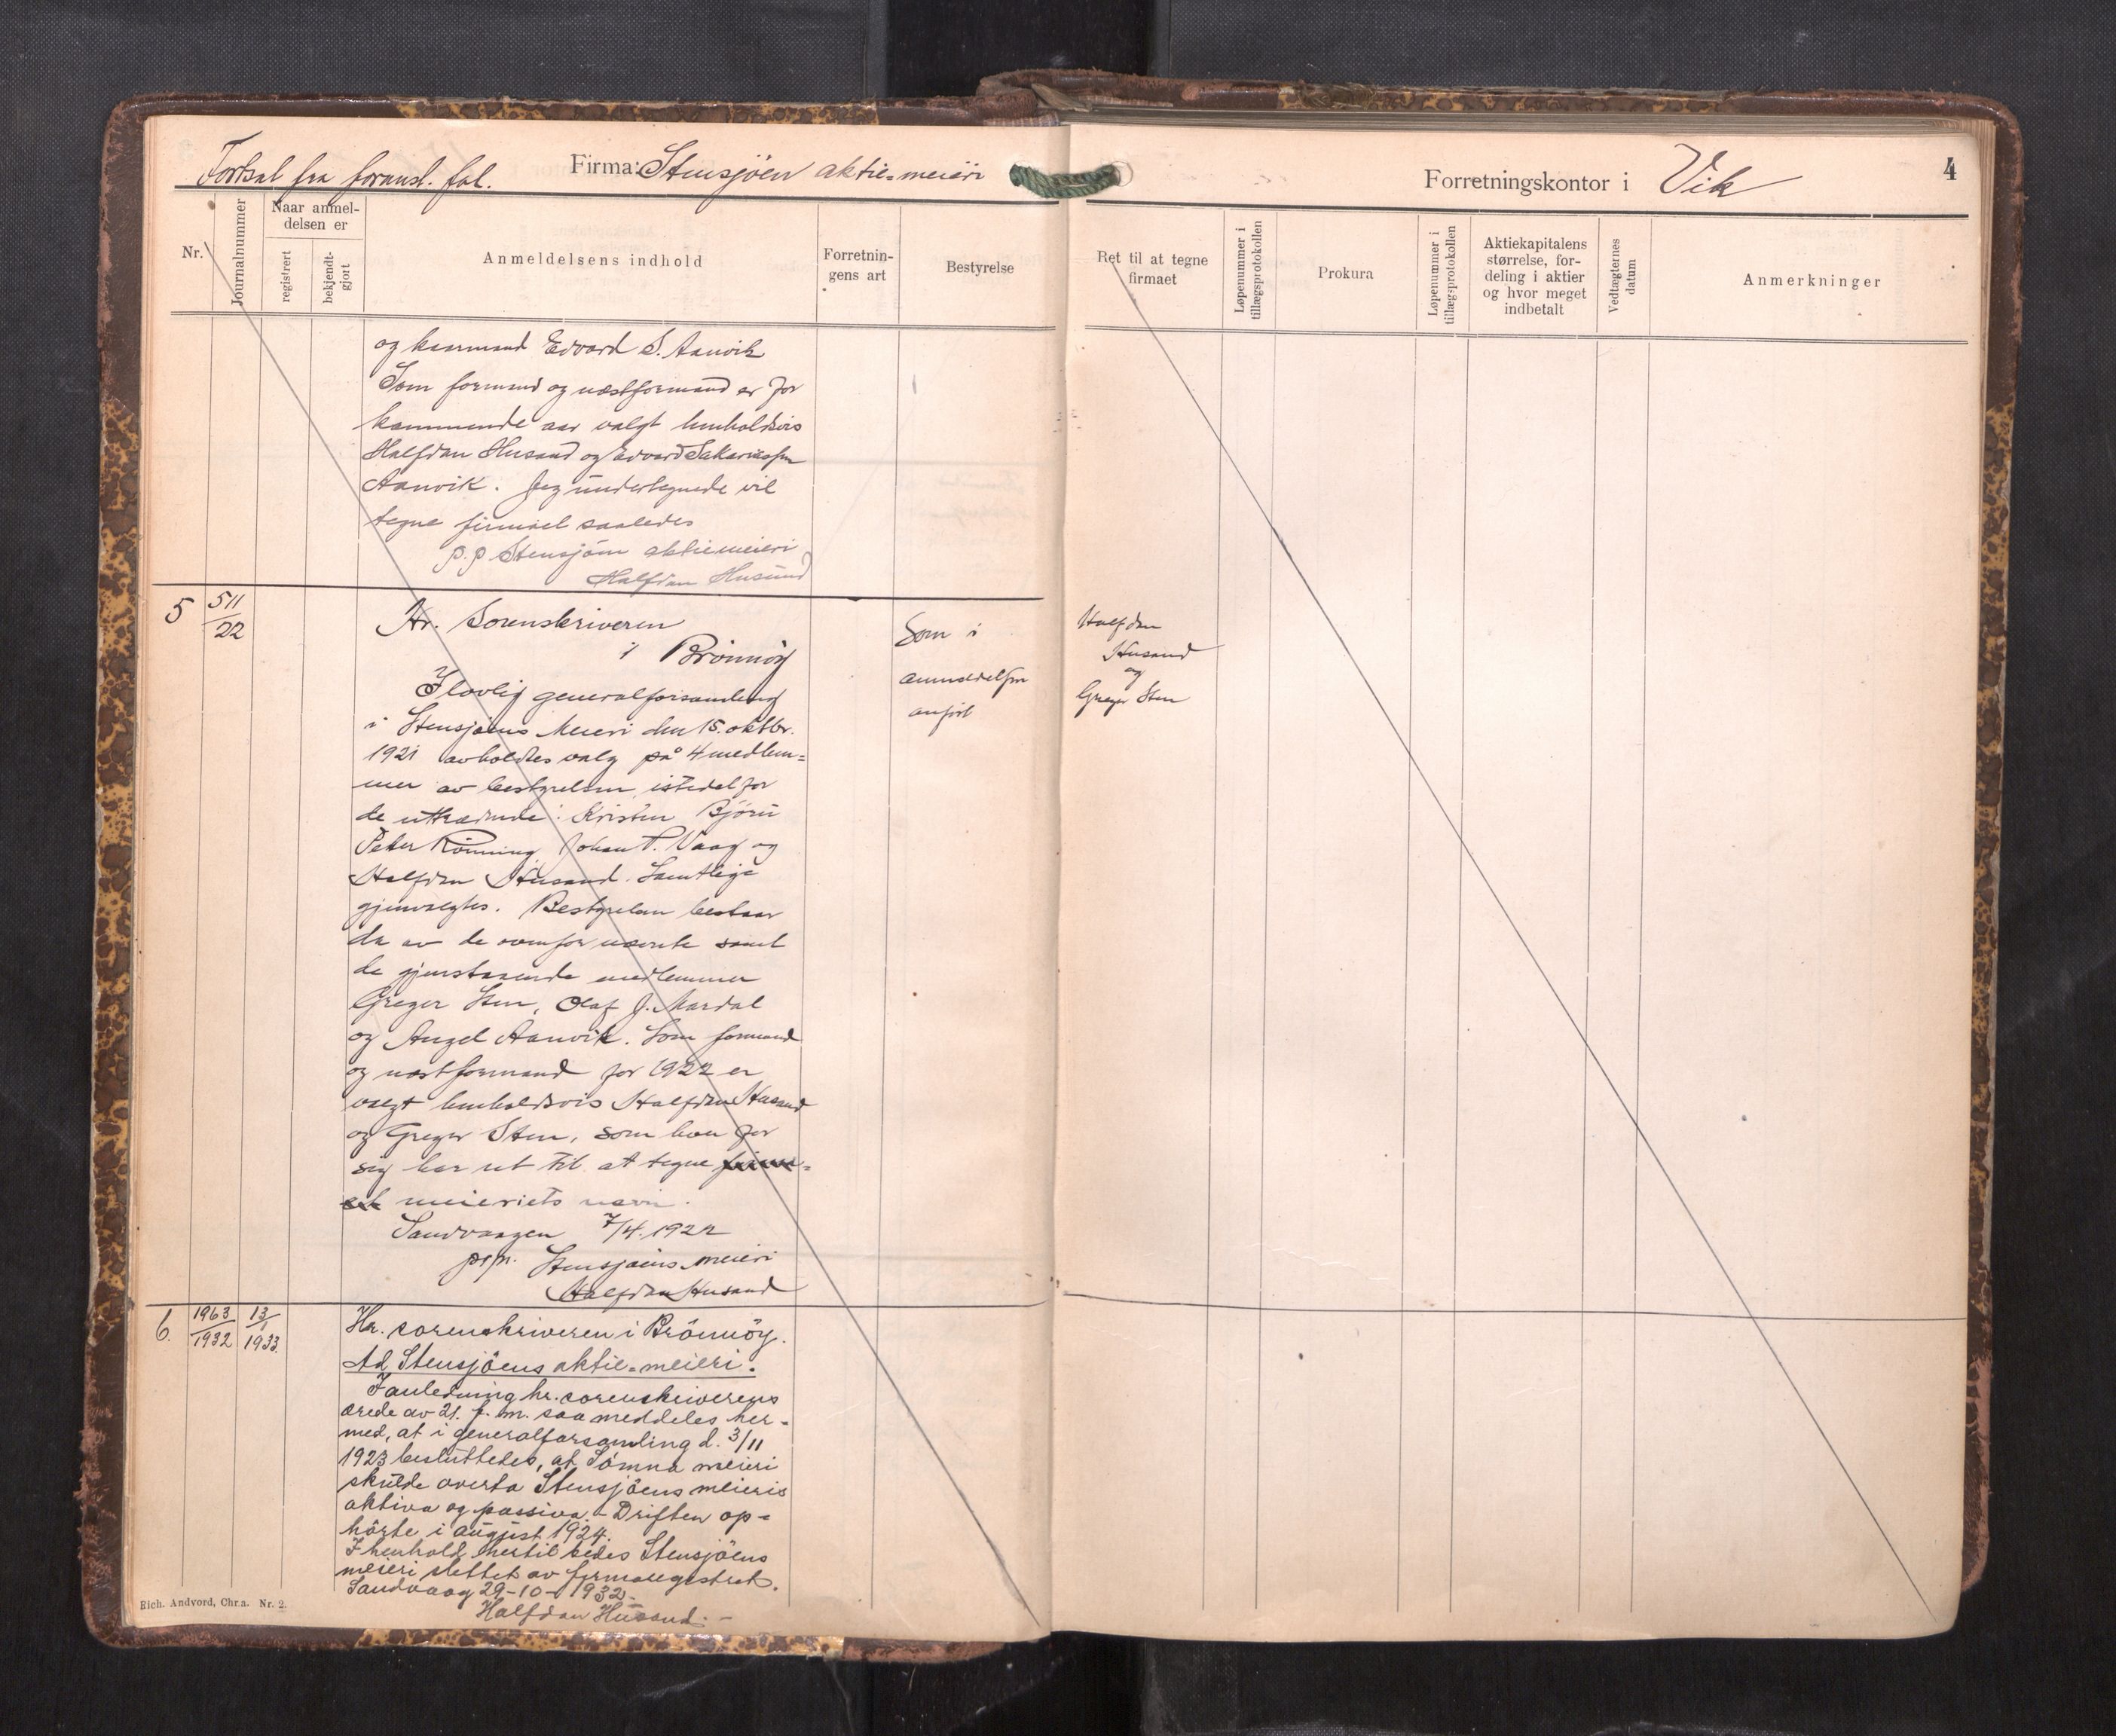 Fortsat fra foranst. fol.
Firma: Stensjöen aktie=meieri
Forretningskontor i Vik
4
Nr.
Journalnummer
Naar anmel-
delsen er
registrert
bekjendt-
gjort
Anmeldelsens indhold
Forretnin-
gens art
Bestyrelse
Ret til at tegne
firmaet
Løpenummer i
tillægsprotokollen
Prokura
Løpenummer i
tillægsprotokollen
Aktiekapitalens
størrelse, for-
deling i aktier
og hvor meget
indbetalt
Vedtægternes
datum
Anmerkninger
og kaarmand Edvard S. Aanvik
Som formand og næstformand er for
kommende aar valgt henholdsvis
Halfdan Husand og Edvard Sakariassen
Aanvik. Jeg undertegnede vil
tegne firmaet saaledes
p.p Stensjöen aktiemeieri
Halfdan Husand
5
511
22
Hr. Sorenskriveren
i Brönnöy
I lovlig generalforsamling
i Stensjöens Meieri den 15. oktbr.
1921 avholdtes valg på 4 medlem=
mer av bestyrelsen istedet for
de uttrædende: Kristen Björn
Peter Rönning, Johan P. Vaag og
Halfdan Husand. Samtlige
gjenvalgtes. Bestyrelsen bestaar
da av de ovenfor nævnte samt
de gjenstaaende medlemmer
Greger Sten, Olaf J. Mardal
og Angel Aanvik. Som formand
og næstformand for 1922 er
valgt henholdsvis Halfdan Husand
og Greger Sten, som hver for
sig har ret til at tegne firma=
et meieriets navn.
Sandvaagen 7/4. 1922
pr pr. Stensjöens meieri
Halfdan Husand
Som i
anmeldelsen
anfört
Halfdan
Husand
og
Greger Sten
6.
1963
1932
13/1
1933.
Hr. sorenskriveren i Brönnöy.
Ad Stensjöens aktie=meieri.
I anledning hr. sorenskriverens
ærede av 21. f. m. saa meddeles her-
med, at i generalforsamling d. 3/11
1923 besluttedes, at Sömna meieri
skulde overta Stensjöens meieris
aktiva og passiva. - Driften op=
hörte i august 1924.
I henhold hertil bedes Stensjöens
meieri slettet av firmaregistret.
Sandvaag 29-10-1932.
Halfdan Husand. -
Rich. Andvord, Chr.a. Nr. 2.